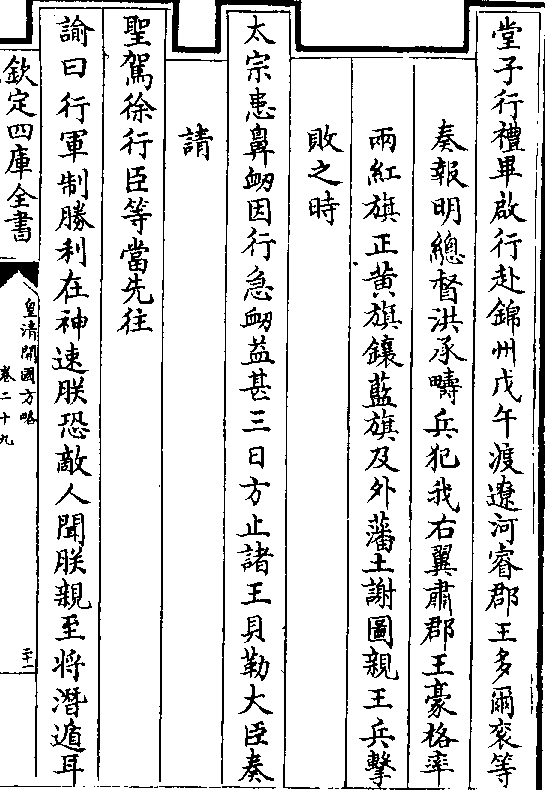 堂子行禮畢啟行赴錦州戊午渡遼河睿郡王多爾衮等
奏報明總督洪承疇兵犯我右翼肅郡王豪格率
兩紅旗正黃旗鑲藍旗及外藩土謝圖親王兵擊
敗之時
太宗患鼻衂因行急衂益甚三日方止諸王貝勒大臣奏
請
聖駕徐行臣等當先往
諭曰行軍制勝利在神速朕恐敵人聞朕親至将潛遁耳
欽定四庫全書
皇清開國方略
卷二十九